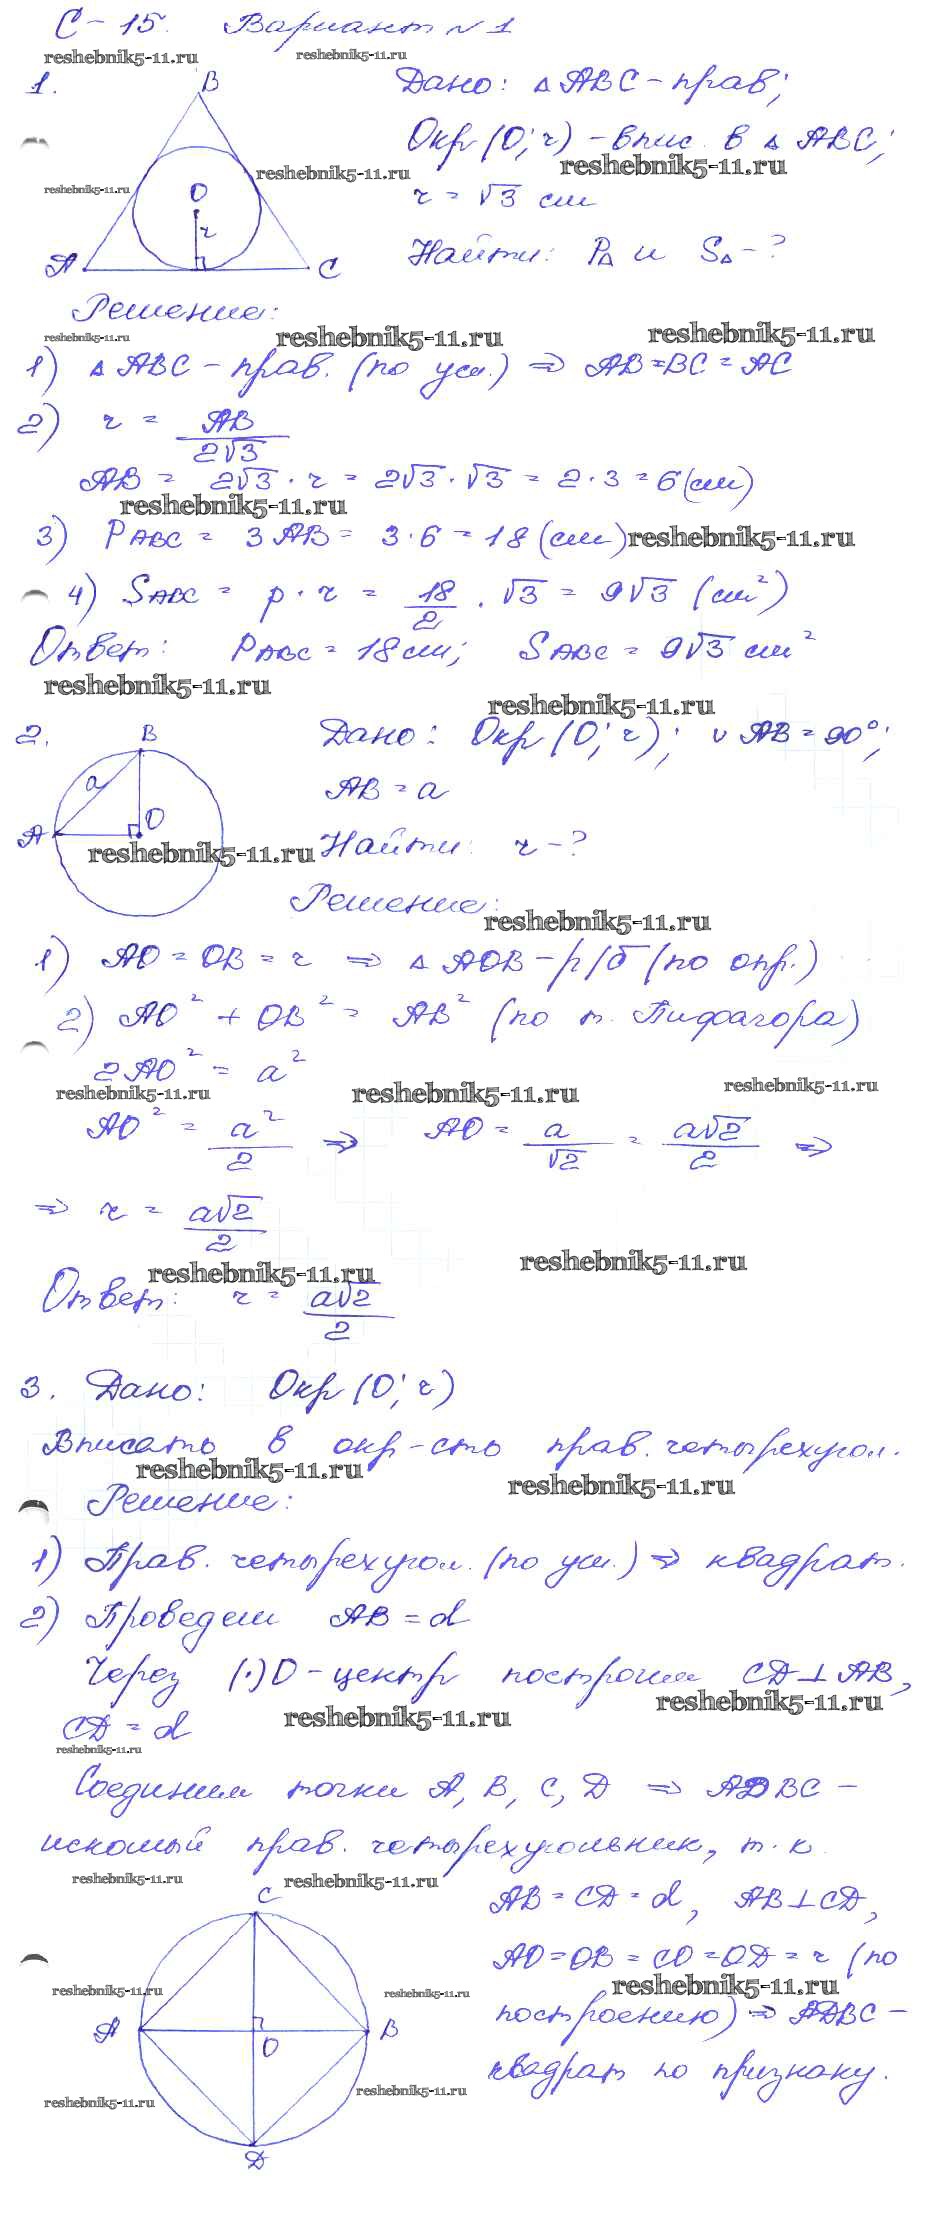 С-15. Вариант №1
reshebnik5-11.ru reshebnik5-11.ru
1. B Дано: △ABC - прав;
Окр(O; r) - впис. в △ABC;
reshebnik5-11.ru reshebnik5-11.ru
reshebnik5-11.ru
O
r = √3 см
r
A C Найти: P△ и S△ - ?
Решение:
reshebnik5-11.ru reshebnik5-11.ru reshebnik5-11.ru
1) △ABC - прав. (по усл.) ⇒ AB=BC=AC
2) r = AB/2√3
AB = 2√3 · r = 2√3 · √3 = 2·3 = 6 (см)
reshebnik5-11.ru
3) PABC = 3AB = 3·6 = 18 (см) reshebnik5-11.ru
4) SABC = p · r = 18/2 · √3 = 9√3 (см²)
Ответ: PABC = 18 см; SABC = 9√3 см²
reshebnik5-11.ru reshebnik5-11.ru
2. B Дано: Окр(O; r); ∪AB = 90°;
a
AB = a
A O Найти: r - ?
reshebnik5-11.ru
Решение:
reshebnik5-11.ru
1) AO = OB = r ⇒ △AOB - р/б (по опр.)
2) AO² + OB² = AB² (по т. Пифагора)
2AO² = a²
reshebnik5-11.ru reshebnik5-11.ru reshebnik5-11.ru
AO² = a²/2 ⇒ AO = a/√2 = a√2/2 ⇒
⇒ r = a√2/2
reshebnik5-11.ru reshebnik5-11.ru
Ответ: r = a√2/2
3. Дано: Окр(O; r)
Вписать в окр-сть прав. четырехугол.
reshebnik5-11.ru reshebnik5-11.ru
Решение:
1) Прав. четырехугол. (по усл.) ⇒ квадрат.
2) Проведем AB = d
Через (·)O - центр построим CD⊥AB,
reshebnik5-11.ru reshebnik5-11.ru
CD = d
reshebnik5-11.ru
Соединим точки A, B, C, D ⇒ ADBC -
искомый прав. четырехугольник, т.к.
reshebnik5-11.ru reshebnik5-11.ru
C AB = CD = d, AB⊥CD,
AO=OB=CO=OD=r (по
reshebnik5-11.ru reshebnik5-11.ru reshebnik5-11.ru
построению) ⇒ ADBC -
A O B
квадрат по признаку.
reshebnik5-11.ru reshebnik5-11.ru
D